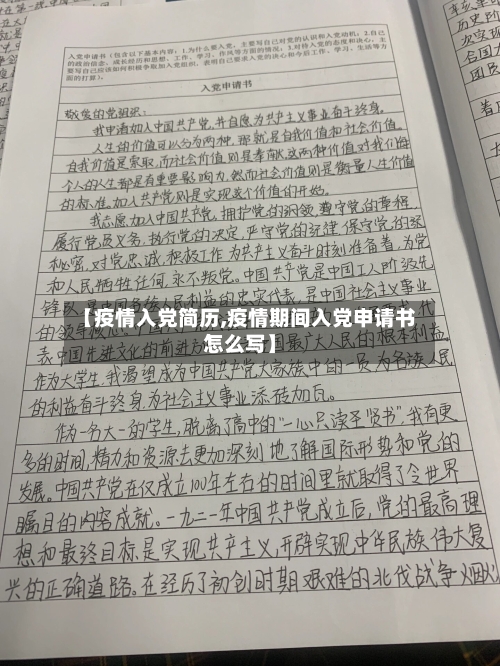 入党申请书（包含以下基本内容：1.为什么要入党：主要写自己对党的认识和入党动机；2.自己
的政治信念、成长经历和思想、工作、学习、作风等方面的情况；3.对待入党的态度和决心，主
要写自己应该如何积极争取加入党组织，表明自己要求入党的决心和今后工作、学习、生活等方
面的打算）。
入党申请书
敬爱的党组织：
我申请加入中国共产党，并自愿为共产主义事业奋斗终身。
人生的价值可以分为两种，那就是自我价值和社会价值。
自我价值是索取，而社会价值则是奉献，这两种价值对我们每
个人的人生都是有重要影响力，然而社会价值则是衡量人生价值
的标准，加入共产党则是实现这个价值的开始。
我志愿加入中国共产党，拥护党的纲领，遵守党的章程，
履行党员义务，执行党的决定，严守党的纪律，保守党的
秘密，对党忠诚，积极工作，为共产主义奋斗时刻准备着，为党
和人民牺牲任何，永不叛党。中国共产党是中国工人阶级先
锋队，是中国各族人民利益的忠实代表，是中国社会主义事业
【疫情入党简历,疫情期间入党申请书
怎么写】
的领导核心
表中国先进文化的前进方向 国最广大人民的根本利益。
作为大学生，我渴望成为中国共产党大家族中的一员，为各族人民
的利益奋斗终身，为社会主义事业添砖加瓦。
作为一名大一的学生，脱离了高中的“一心只读圣贤书”，我有更
多的时间，精力和资源去更加深刻地了解国际形势和党的
发展。中国共产党在仅成立100年左右的时间里就取得了令世界
瞩目的内容成就。一九二一年中国共产党成立后，党的最高理
想和最终目标是实现共产主义，开辟实现中华民族伟大复
兴的正确道路。在经历了初创时期艰难的北伐战争烟火